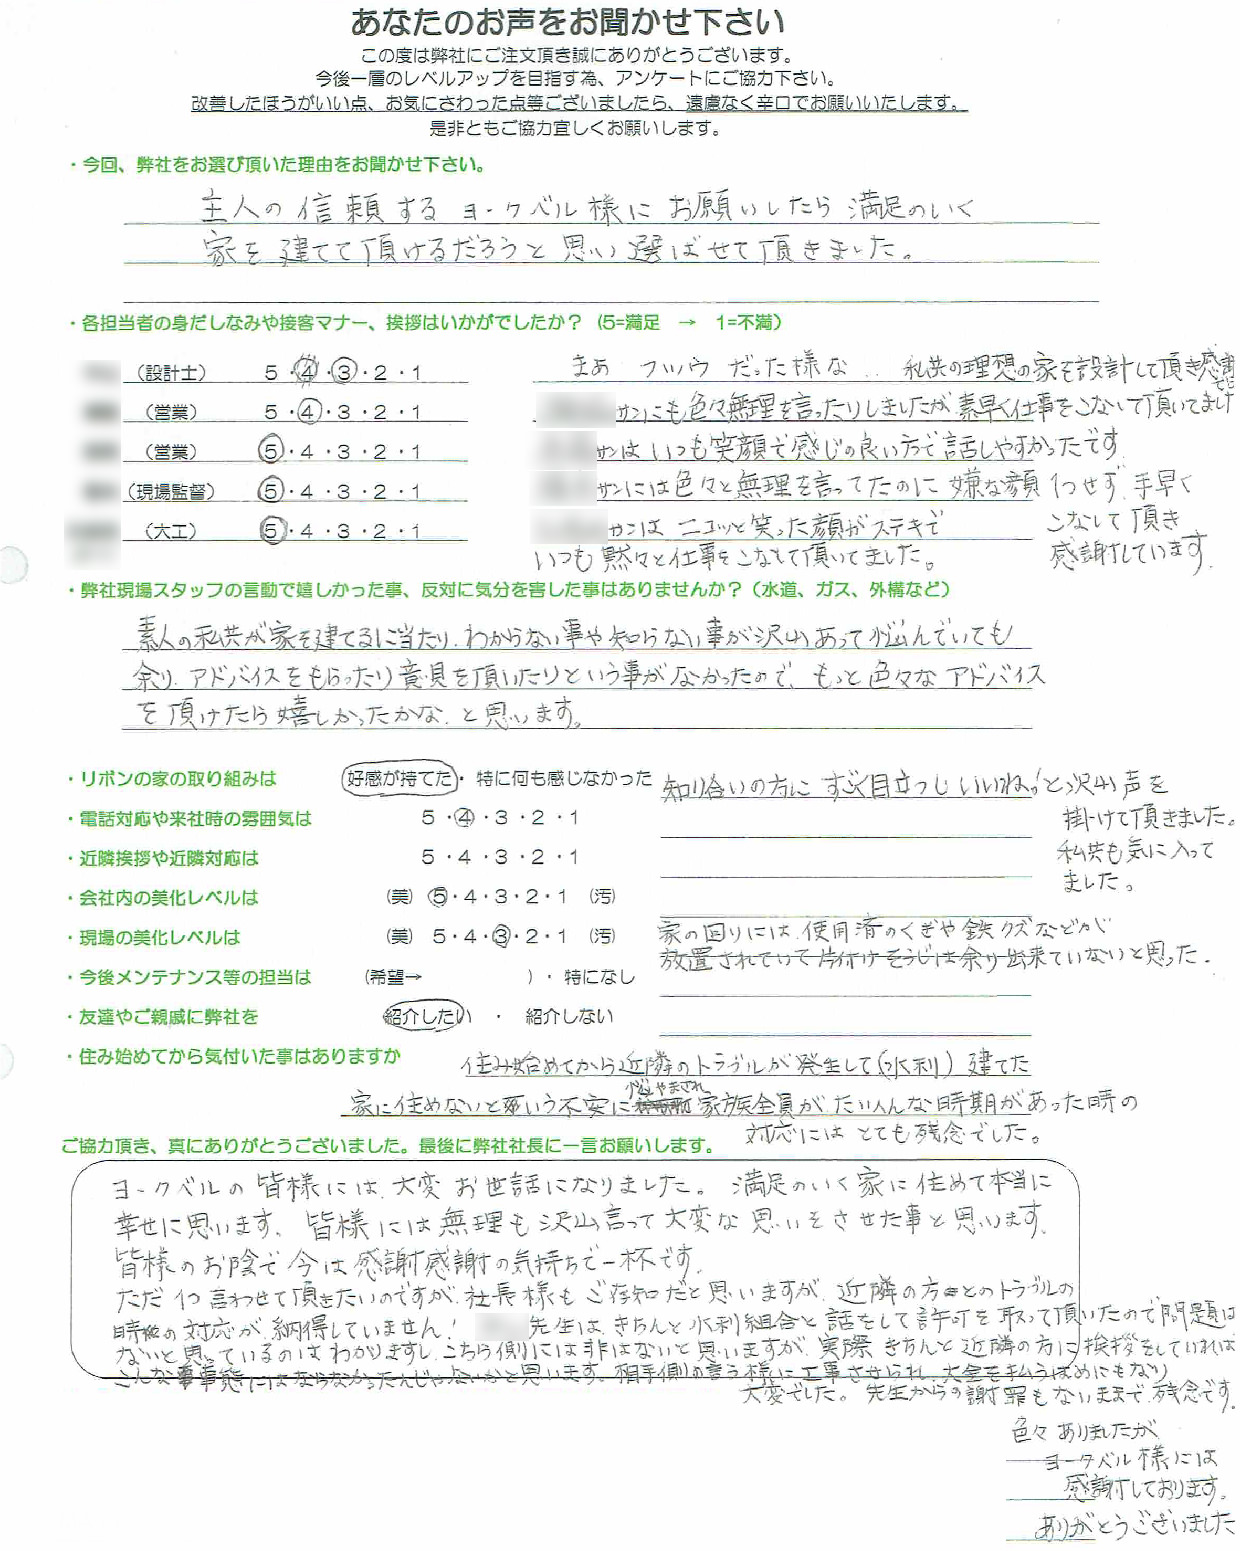 あなたのお声をお聞かせ下さい
この度は弊社にご注文頂き誠にありがとうございます。
今後一層のレベルアップを目指す為、アンケートにご協力下さい。
改善したほうがいい点、お気にさわった点等ございましたら、遠慮なく辛口でお願いいたします。
是非ともご協力宜しくお願いします。
・今回、弊社をお選び頂いた理由をお聞かせ下さい。
主人の信頼するヨークベル様にお願いしたら満足のいく
家を建てて頂けるだろうと思い選ばせて頂きました。
・各担当者の身だしなみや接客マナー、挨拶はいかがでしたか？（5=満足　→　1=不満）
（設計士）　5・4・3・2・1　まあ フツウ だった様な‥ 私共の理想の家を設計して頂き感謝です
（営業）　5・4・3・2・1　サンにも色々無理を言ったりしましたが素早く仕事をこなして頂いてました
（営業）　5・4・3・2・1　サンは いつも笑顔で感じの良い方で話しやすかったです
（現場監督）　5・4・3・2・1　サンには色々と無理を言ってたのに嫌な顔1つせず、手早く
こなして頂き
感謝しています。
（大工）　5・4・3・2・1　サンは ニコッと笑った顔がステキで
いつも黙々と仕事をこなして頂いてました。
・弊社現場スタッフの言動で嬉しかった事、反対に気分を害した事はありませんか？（水道、ガス、外構など）
素人の私共が家を建てるに当たり、わからない事や知らない事が沢山あって悩んでいても
余り、アドバイスをもらったり意見を頂いたりという事がなかったので、もっと色々なアドバイス
を頂けたら嬉しかったかな、と思います。
・リボンの家の取り組みは　好感が持てた・特に何も感じなかった　知り合いの方に すぐ目立つし いいね！と沢山声を
掛けて頂きました。
私共も気に入って
ました。
・電話対応や来社時の雰囲気は　5・4・3・2・1
・近隣挨拶や近隣対応は　5・4・3・2・1
・会社内の美化レベルは　（美）5・4・3・2・1（汚）
・現場の美化レベルは　（美）5・4・3・2・1（汚）　家の回りには、使用済のくぎや鉄クズなどが
放置されていて片付けそうじは余り出来ていないと思った。
・今後メンテナンス等の担当は　（希望→　　　　）・特になし
・友達やご親戚に弊社を　紹介したい　・　紹介しない
・住み始めてから気付いた事はありますか　住み始めてから近隣のトラブルが発生して（水利）建てた
家に住めないと いう不安に悩やまされ家族全員が たいへんな時期があった時の
対応には とても残念でした。
ご協力頂き、真にありがとうございました。最後に弊社社長に一言お願いします。
ヨークベルの皆様には、大変お世話になりました。満足のいく家に住めて本当に
幸せに思います。皆様には無理も沢山言って大変な思いをさせた事と思います。
皆様のお陰で今は感謝感謝の気持ちで一杯です。
ただ1つ言わせて頂きたいのですが、社長様もご存知だと思いますが、近隣の方とのトラブルの
時の対応が、納得していません！　先生は、きちんと水利組合と話をして許可を取って頂いたので問題は
ないと思っているのはわかりますし、こちら側には非はないと思いますが、実際きちんと近隣の方に挨拶をしていれば
こんな事態にはならなかったんじゃないかと思います。相手側の言う様に工事させられ、大金を払うはめにもなり
大変でした。先生からの謝罪もないままで、残念です。
色々ありましたが
ヨークベル様には
感謝しております。
ありがとうございました